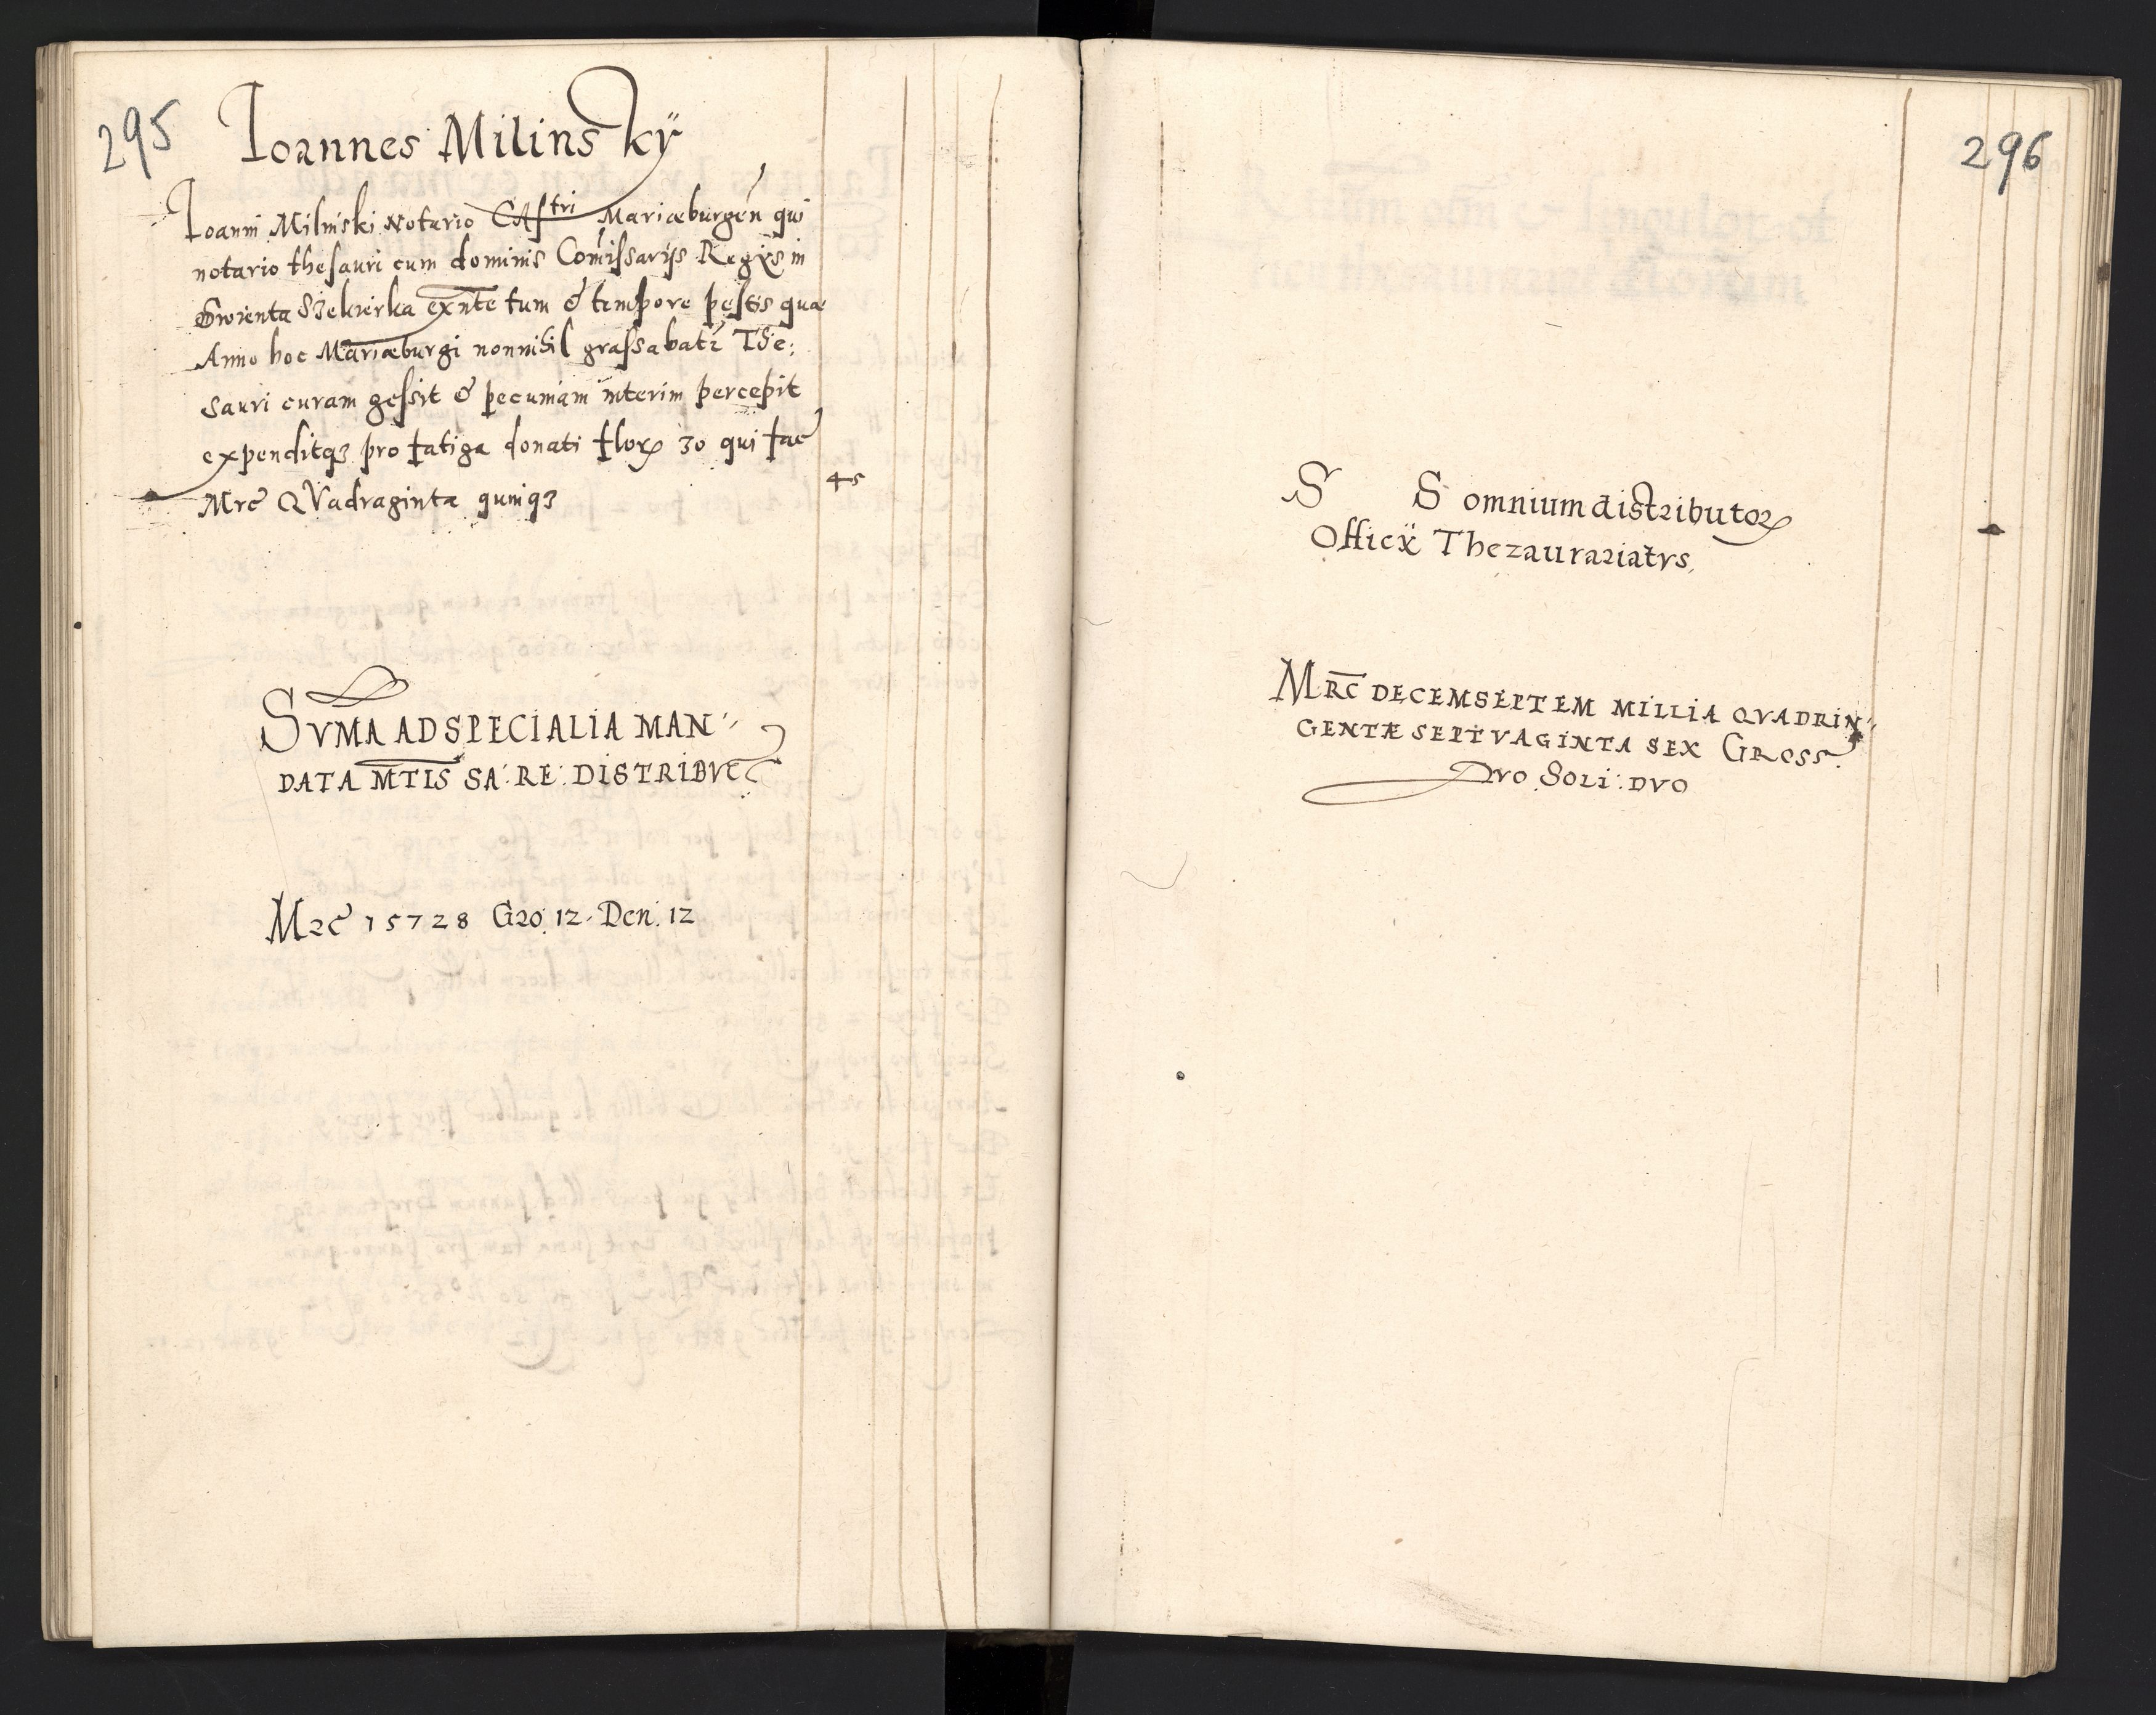 295
Ioannes Milinskÿ
Ioanni Milinski Notario CAstri Mariæburgen̄ qui
notario thesauri cum dominis Com̄issarÿs Regÿs in
Swienta Siekierka exn̄te tum & tempore pestis quæ
Anno hoc Mariæburgi nonnihil grassabatr The:
sauri curam gessit & pecuniam interim percepit
expenditqȝ pro fatiga donati flor 30 qui fac̄
Mrc̄ QVadraginta quinqȝ
45
SVMA AD SPECIALIA MAN"
DATA M̄TIS SA: RE: DISTRIBVT
Mrc̄ 15728 Gro. 12. Den. 12
296
S S omnium distributor
Officÿ Thezaurariatvs.
MRC̄ DECEMSEPTEM MILLIA QVADRIN"
GENTÆ SEPTVAGINTA SEX GROSS.
Dvo Soli: DVO